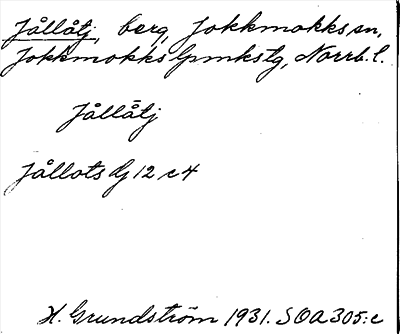 Jållåtj, berg, Jokkmokks sn,
Jokkmokks lpmkstg, Norrb. l.
Jållåtj
Jållots Gj 12 c 4
H. Grundström 1931. SOA 305:c